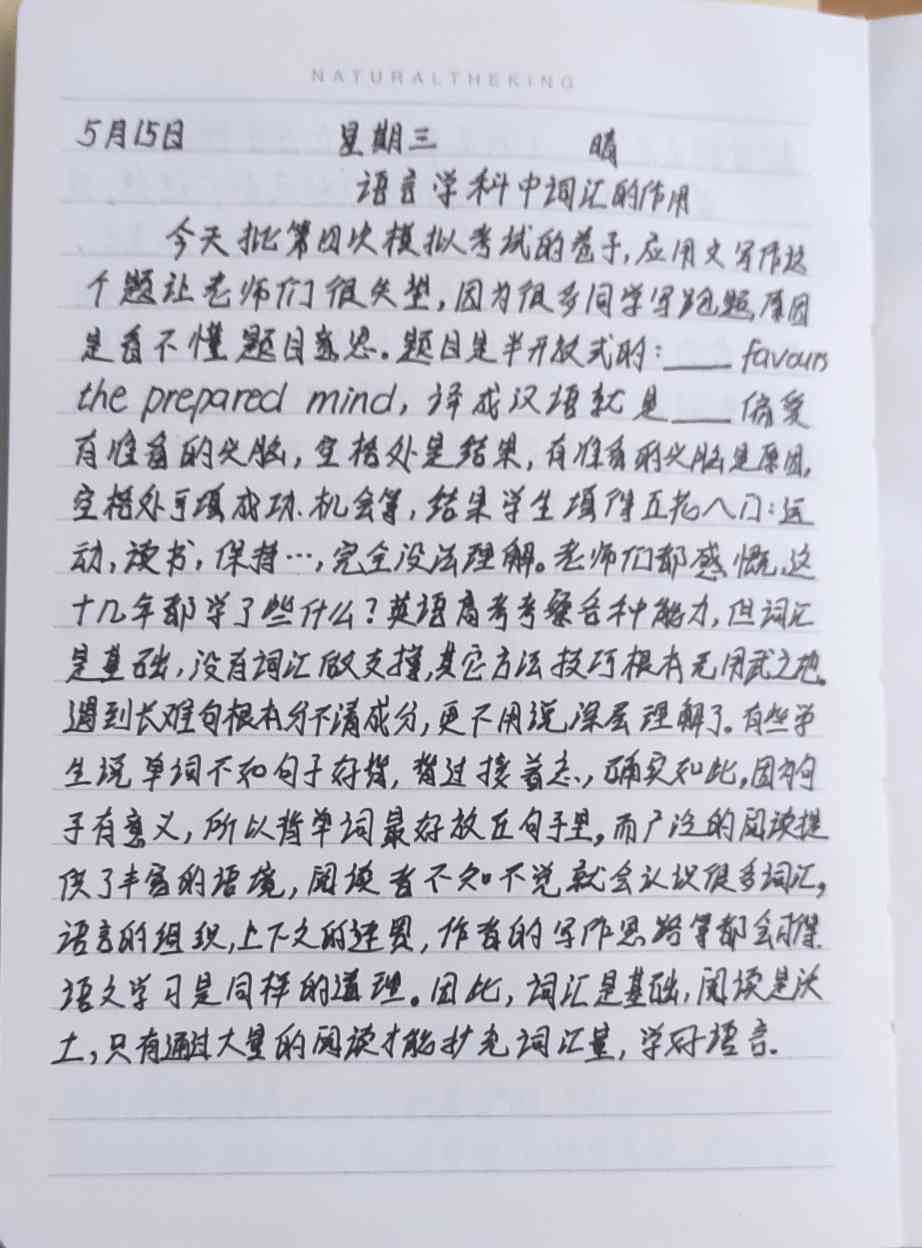 NATURALTHEKING
5月15日 星期三 晴
语言学科中词汇的作用
今天批第四次模拟考试的卷子,应用文写作这
个题让老师们很失望,因为很多同学写跑题,原因
是看不懂题目意思。题目是半开放式的:____ favours
the prepared mind,译成汉语就是____偏爱
有准备的头脑,空格处是结果,有准备的头脑是原因,
空格处可填成功、机会等,结果学生填得五花八门:运
动,读书,保持…,完全没法理解。老师们都感慨,这
十几年都学了些什么?英语高考考察各种能力,但词汇
是基础,没有词汇做支撑,其它方法技巧根本无用武之地。
遇到长难句根本分不清成分,更不用说深层理解了。有些学
生说单词不如句子好背,背过接着忘,确实如此,因为句
子有意义,所以背单词最好放在句子里。而广泛的阅读提
供了丰富的语境,阅读者不知不觉就会认识很多词汇,
语言的组织,上下文的连贯,作者的写作思路等都会习得
语文学习是同样的道理。因此,词汇是基础,阅读是沃
土,只有通过大量的阅读才能扩充词汇量,学好语言.